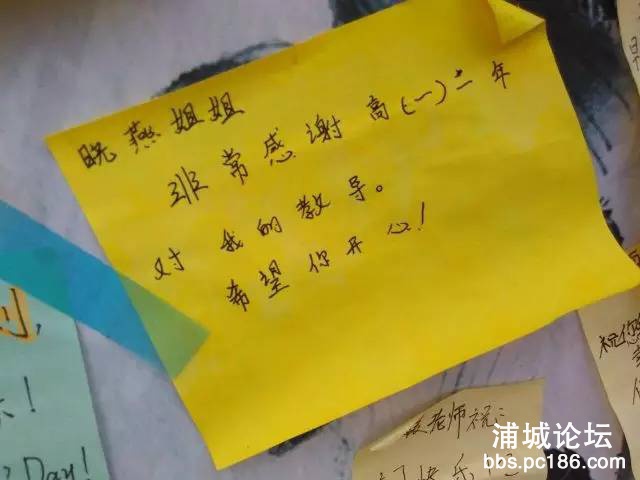 晓燕姐姐
非常感谢高(一)二年
对我的教导。
希望你开心!
Day!
祝您
老师祝:
快乐
浦城论坛
bbs.pc186.com